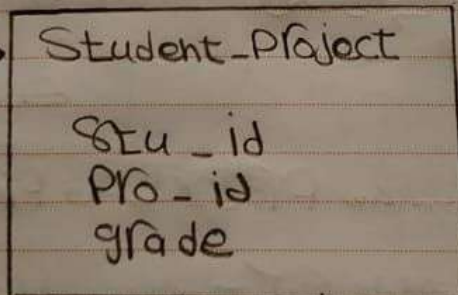 Student_Project
Stu_id
Pro_id
grade